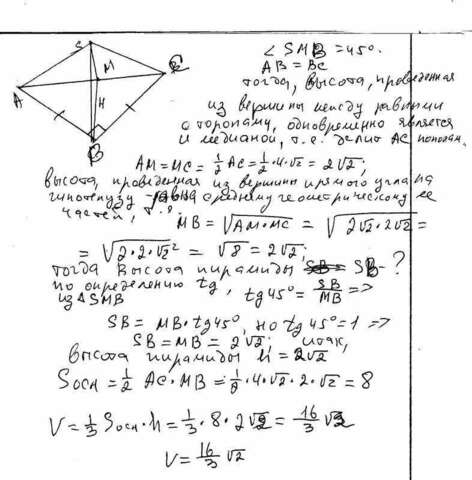 S
M
A
C
H
B
∠ SMB = 45°.
AB = BC
тогда, высота, проведенная
из вершины между равными
сторонами, одновременно является
и медианой, т.е. делит AC пополам.
AM = MC = 1/2 AC = 1/2 · 4 · √2 = 2√2;
высота, проведенная из вершины прямого угла на
гипотенузу равна среднему геометрическому ее
частей, т.е.
MB = √AM·MC = √2√2·2√2 =
= √2·2·√2² = √8 = 2√2;
тогда высота пирамиды SB - ?
по определению tg, tg45° = SB/MB =>
из ΔSMB
SB = MB · tg45°, но tg45° = 1 =>
SB = MB = 2√2; итак,
высота пирамиды h = 2√2
Sосн = 1/2 AC · MB = 1/2 · 4√2 · 2·√2 = 8
V = 1/3 Sосн · h = 1/3 · 8 · 2√2 = 16/3 √2
V = 16/3 √2